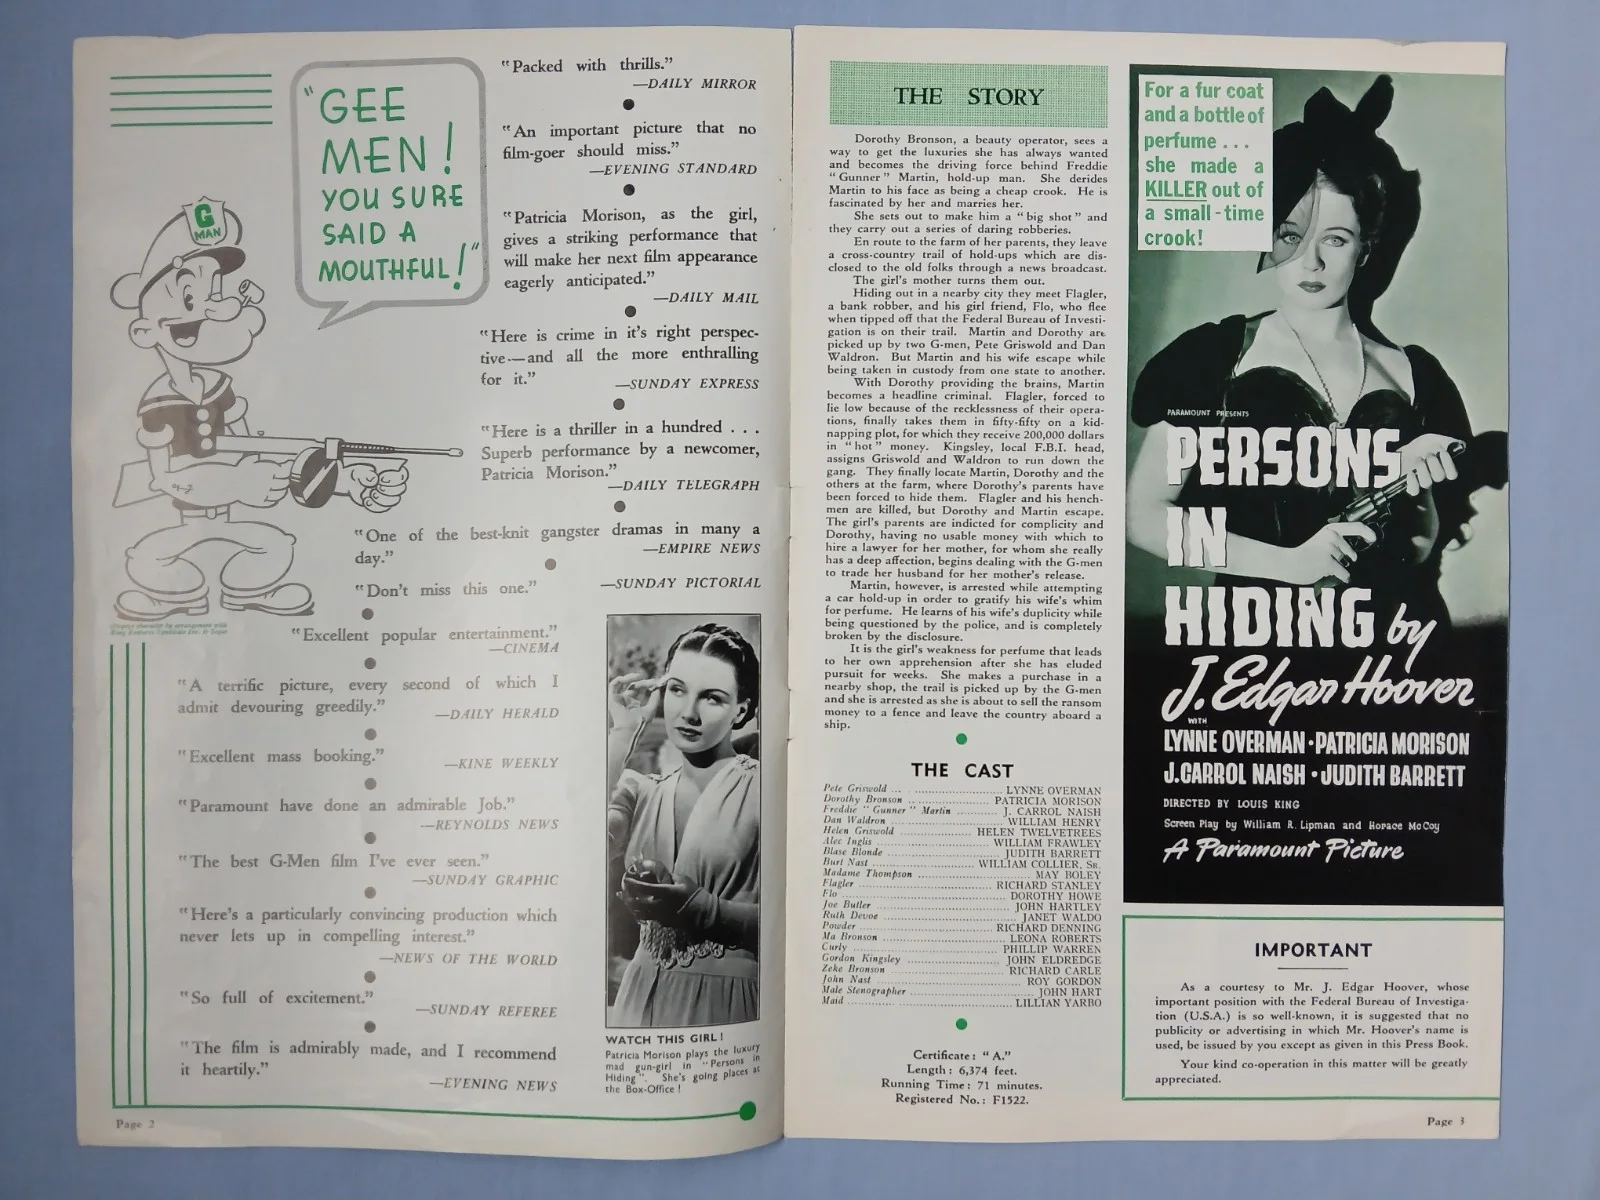 "GEE
MEN!
YOU SURE
SAID A
MOUTHFUL!"
G
MAN
"Packed with thrills."
—DAILY MIRROR
"An important picture that no
film-goer should miss."
—EVENING STANDARD
"Patricia Morison, as the girl,
gives a striking performance that
will make her next film appearance
eagerly anticipated."
—DAILY MAIL
"Here is crime in it's right perspec-
tive—and all the more enthralling
for it."
—SUNDAY EXPRESS
"Here is a thriller in a hundred . . .
Superb performance by a newcomer,
Patricia Morison."
—DAILY TELEGRAPH
"One of the best-knit gangster dramas in many a
day."
—EMPIRE NEWS
"Don't miss this one."
—SUNDAY PICTORIAL
"Excellent popular entertainment."
—CINEMA
"A terrific picture, every second of which I
admit devouring greedily."
—DAILY HERALD
"Excellent mass booking."
—KINE WEEKLY
"Paramount have done an admirable Job."
—REYNOLDS NEWS
"The best G-Men film I've ever seen."
—SUNDAY GRAPHIC
"Here's a particularly convincing production which
never lets up in compelling interest."
—NEWS OF THE WORLD
"So full of excitement."
—SUNDAY REFEREE
"The film is admirably made, and I recommend
it heartily."
—EVENING NEWS
WATCH THIS GIRL!
Patricia Morison plays the luxury
mad gun-girl in "Persons in
Hiding". She's going places at
the Box-Office!
Page 2
THE STORY
Dorothy Bronson, a beauty operator, sees a
way to get the luxuries she has always wanted
and becomes the driving force behind Freddie
"Gunner" Martin, hold-up man. She derides
Martin to his face as being a cheap crook. He is
fascinated by her and marries her.
She sets out to make him a "big shot" and
they carry out a series of daring robberies.
En route to the farm of her parents, they leave
a cross-country trail of hold-ups which are dis-
closed to the old folks through a news broadcast.
The girl's mother turns them out.
Hiding out in a nearby city they meet Flagler,
a bank robber, and his girl friend, Flo, who flee
when tipped off that the Federal Bureau of Investi-
gation is on their trail. Martin and Dorothy are
picked up by two G-men, Pete Griswold and Dan
Waldron. But Martin and his wife escape while
being taken in custody from one state to another.
With Dorothy providing the brains, Martin
becomes a headline criminal. Flagler, forced to
lie low because of the recklessness of their opera-
tions, finally takes them in fifty-fifty on a kid-
napping plot, for which they receive 200,000 dollars
in "hot" money. Kingsley, local F.B.I. head,
assigns Griswold and Waldron to run down the
gang. They finally locate Martin, Dorothy and the
others at the farm, where Dorothy's parents have
been forced to hide them. Flagler and his hench-
men are killed, but Dorothy and Martin escape.
The girl's parents are indicted for complicity and
Dorothy, having no usable money with which to
hire a lawyer for her mother, for whom she really
has a deep affection, begins dealing with the G-men
to trade her husband for her mother's release.
Martin, however, is arrested while attempting
a car hold-up in order to gratify his wife's whim
for perfume. He learns of his wife's duplicity while
being questioned by the police, and is completely
broken by the disclosure.
It is the girl's weakness for perfume that leads
to her own apprehension after she has eluded
pursuit for weeks. She makes a purchase in a
nearby shop, the trail is picked up by the G-men
and she is arrested as she is about to sell the ransom
money to a fence and leave the country aboard a
ship.
THE CAST
Pete Griswold ... LYNNE OVERMAN
Dorothy Bronson ... PATRICIA MORISON
Freddie "Gunner" Martin ... J. CARROL NAISH
Dan Waldron ... WILLIAM HENRY
Helen Griswold ... HELEN TWELVETREES
Alec Inglis ... WILLIAM FRAWLEY
Blase Blonde ... JUDITH BARRETT
Burt Nast ... WILLIAM COLLIER, SR.
Madame Thompson ... MAY BOLEY
Flagler ... RICHARD STANLEY
Flo ... DOROTHY HOWE
Joe Butler ... JOHN HARTLEY
Ruth Devoe ... JANET WALDO
Powder ... RICHARD DENNING
Ma Bronson ... LEONA ROBERTS
Curly ... PHILLIP WARREN
Gordon Kingsley ... JOHN ELDREDGE
Zeke Bronson ... RICHARD CARLE
John Nast ... ROY GORDON
Male Stenographer ... JOHN HART
Maid ... LILLIAN YARBO
Certificate: "A."
Length: 6,374 feet.
Running Time: 71 minutes.
Registered No.: F1522.
For a fur coat
and a bottle of
perfume ...
she made a
KILLER out of
a small-time
crook!
PARAMOUNT PRESENTS
PERSONS
IN
HIDING by
J. Edgar Hoover
WITH
LYNNE OVERMAN • PATRICIA MORISON
J. CARROL NAISH • JUDITH BARRETT
DIRECTED BY LOUIS KING
Screen Play by William R. Lipman and Horace McCoy
A Paramount Picture
IMPORTANT
As a courtesy to Mr. J. Edgar Hoover, whose
important position with the Federal Bureau of Investiga-
tion (U.S.A.) is so well-known, it is suggested that no
publicity or advertising in which Mr. Hoover's name is
used, be issued by you except as given in this Press Book.
Your kind co-operation in this matter will be greatly
appreciated.
Page 3